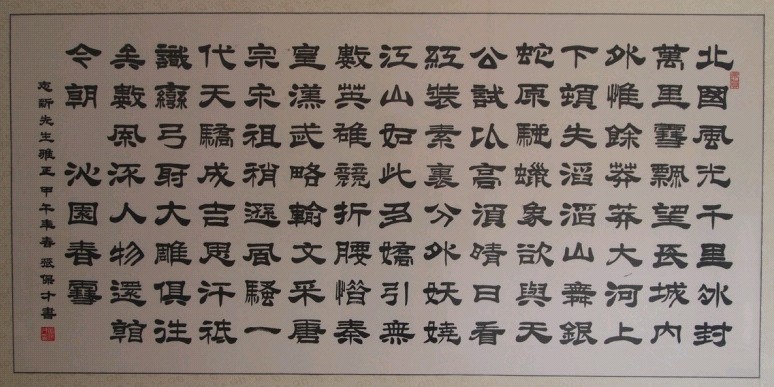 北國風光千里冰封
萬里雪飄望長城內
外惟餘莽莽大河上
下頓失滔滔山舞銀
蛇原馳蠟象欲與天
公試比高須晴日看
紅裝素裹分外妖嬈
江山如此多嬌引無
數英雄競折腰惜秦
皇漢武略輸文采唐
宗宋祖稍遜風騷一
代天驕成吉思汗祗
識彎弓射大雕俱往
矣數風流人物還看
今朝 沁園春雪
先生雅正 甲午年春 張保才書